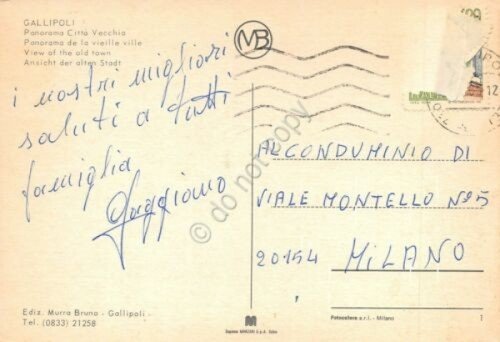 GALLIPOLI
Panorama Città Vecchia
Panorama de la vieille ville
View of the old town
Ansicht der alten Stadt
MB
i nostri migliori
saluti a tutti
famiglia
do not copy
AL CONDUMINIO DI
VIALE MONTELLO Nº5
20154 MILANO
Ediz. Murra Bruno - Gallipoli
Tel. (0833) 21258
Fotocolore s.r.l. - Milano